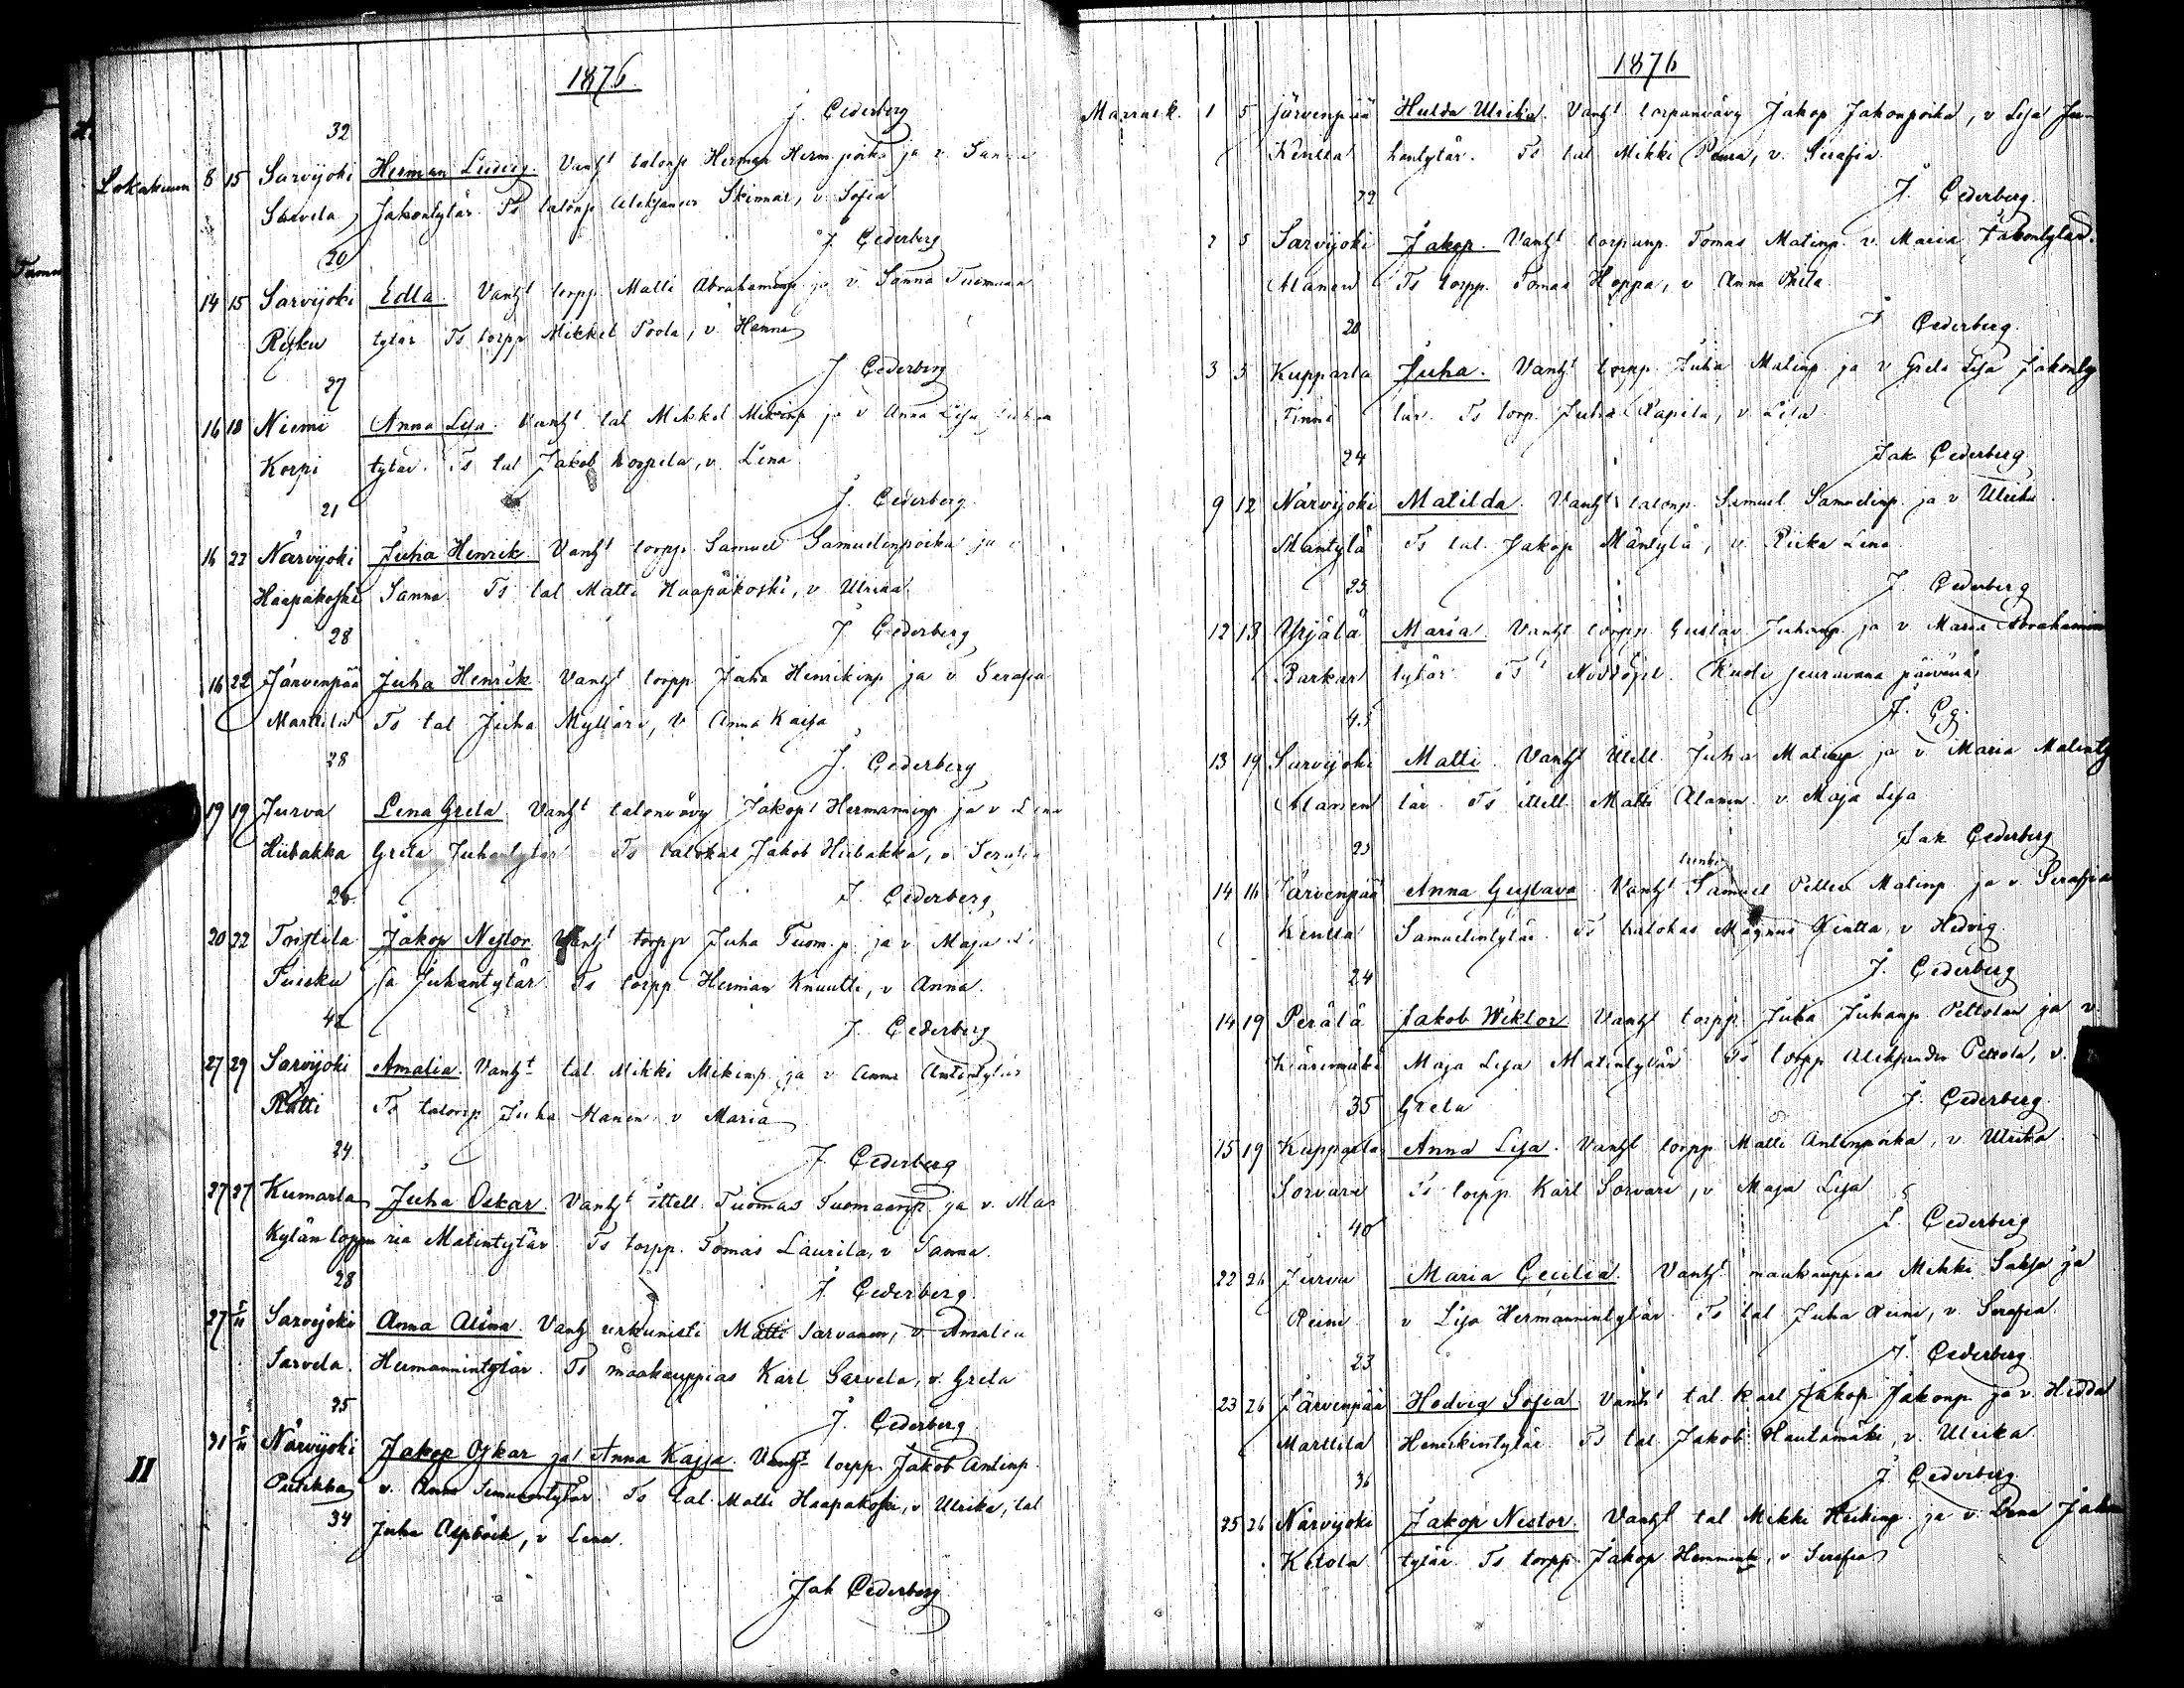 1876.
J. Cederberg
32
Lokakuun 8 15 Sarvijoki Herman Ludvig. Vanht talonp Herman Herm.poika ja v. Sanna
Jakontytär. Ts talonp Aleksander Skinnar, v. Sofia
J. Cederberg
20
14 15 Sarvijoki Edla. Vanht torpp. Matti Abrahaminp ja v Sanna Tuomaan
tytär Ts torpp Mikkel Poola, v. Hanna
J Cederberg
27
16 18 Niemi Anna Lisa. Vanht tal Mikkel Mikinp ja v Anna Lisa
Korpi tytär. Ts tal Jakob Korpela, v. Lena
J. Cederberg.
21
16 22 Närvijoki Juha Henrik Vanht torpp. Samuel Samuelinpoika ja v
Haapakoski Sanna. Ts tal Matti Haapakoski, v Ulriika
J Cederberg
28
16 22 Järvenpää Juha Henrik Vanht torpp Juha Henrikinp ja v Serafia
Marttila Ts tal Juha Mylläri, v Anna Kaisa
J. Cederberg
28
19 19 Jurva Lena Greta Vanht talonvävy Jakop Hermanninp ja v Lena
Hiibakka Greta Juhantytär Ts talokas Jakob Hiibakka, v. Serafia
J. Cederberg
26.
20 22 Tristila Jakop Nestor Vanht torpp Juha Tuom.p. ja v. Maja Li
Tuisku sa Juhantytär Ts torpp Herman Knuutti, v Anna.
J. Cederberg
42
27 29 Sarvijoki Amalia. Vanht tal. Mikki Mikinp. ja v Anna Antintytär
Rätti Ts talonp Juha Alanen v Maria
J. Cederberg
24
27 27 Kumarla Juha Oskar. Vanht ittell. Tuomas Tuomaanp. ja v. Ma
Kylänloppu ria Matintytär Ts torpp. Tomas Laurila, v Sanna.
J. Cederberg.
28
27 5/11 Sarvijoki Anna Alina. Vanh urkunisti Matti Sarvanen, v Amalia
Sarvela. Hermannintytär. Ts maakauppias Karl Sarvela, v. Greta
J. Cederberg
35
31 5/11 Närvijoki Jakop Oskar ja Anna Kajsa. Vanht torpp Jakob Antinp.
Pulikka v. Anna Ts tal. Matti Haapakoski, v Ulrika, tal
34 Juha Aspbäck, v Lena.
Jak Cederberg
II
1876
Marrask. 1 5 Järvenpää Hulda Ulrika. Vanht torpanvävy Jakop Jakonpoika, v Lisa Ju
Kentta hantytär. Ts tal Mikki v. Serafia.
J. Cederberg.
32
2 5 Sarvijoki Jakop. Vanht torpanp. Tomas Matinp. v. Maria Jakontytär.
Alanen Ts torpp. Tomas Hoppa, v Anna
J Cederberg.
20
3 5 Kupparla Juha. Vanht torpp Juha Matinp ja v Greta Lisa Jakonty
Finni tär. Ts torp. Juha Rapila, v. Lisa
Jak Cederberg
24
9 12 Närvijoki Matilda. Vanht talonp. Samuel Samuelinp. ja v Ulrika
Mäntylä Ts tal. Jakop Mäntylä, v. Riika Lena
J. Cederberg
25
12 13 Yrjälä Maria. Vanht torpp. Gustav Juhanp ja v Maria Abrahamin
Barkar tytär Ts Nöddöpt. Kuoli seuravana päivänä
J. Cg.
45
13 19 Sarvijoki Matti. Vanht ittell. Juha Matinp ja v Maria Matinty
Alanen tär Ts ittell. Matti Alanen v Maja Lisa
Jak Cederberg
25
14 16 Järvenpää Anna Gustava Vanht Samuel Petter Matinp. ja v. Serafia
Kentta Samuelintytär. Ts talokas Magnus Kentta, v Hedvig.
J. Cederberg
24
14 19 Perälä Jakob Wiktor Vanht torpp. Juha Juhanp Peltolan ja v.
Maja Lisa Matintytär Ts torpp Aleksander Peltola, v.
35 Greta J. Cederberg.
15 19 Kupparla Anna Lisa. Vanht torpp Matti Antinpoika, v Ulrika.
Sorvari Ts torpp Karl Sorvari, v Maja Lisa
J. Cederberg
40
22 26 Jurva Maria Cecilia. Vanht maakauppias Mikki Saksa ja
Reini v Lisa Hermannintytär Ts tal Juha Reini, v Serafia
J. Cederberg
23
23 26 Järvenpää Hedvig Sofia Vanht tal Karl Jakop Jakonp ja v. Hedda
Marttila Henrikintytär. Ts tal Jakob Rautamäki, v. Ulrika.
J Cederberg
36
25 26 Närvijoki Jakop Nestor. Vanht tal Mikki Heikinp. ja v. Lena Jakon
Ketola tytär. Ts torpp. Jakop Hemminki, v Serafia